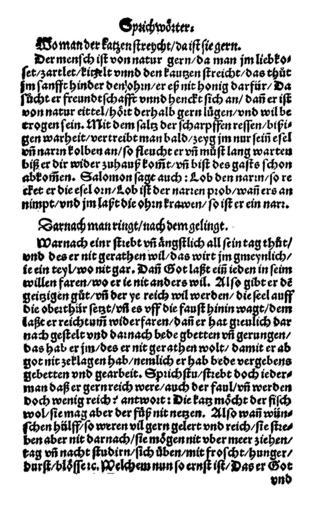 Sprichwörter.
Wo man der katzen streycht/da ist sie gern.
Der mensch ist von natur gern/da man jm liebko-
set/zartlet/kitzelt vnnd den kautzen streicht/das thůt
jm sanfft hinder den ohrn/er eß nit honig darfür/Da
sůcht er freundtschafft vnnd henckt sich an/dañ er ist
von natur eittel/hört derhalb gern lügen/vnd wil be
trogen sein. Mit dem saltz der scharpffen ressen/bißi-
gen warheit/vertreibt man bald/zeyg jm nur sein esel
vñ narrn kolben an/so fleucht er vñ můst lang warten
biß er dir wider zuhauß kom̃t/vñ bist des gasts schon
abkom̃en. Salomon sage auch: Lob den narrn/so re
cket er die esel orn/Lob ist der narren prob/wañ ers an
nimpt/vnd jm laßt die ohrn krawen/so ist er ein narr.
Darnach man ringt/nach dem gelingt.
Warnach einr strebt vñ ängstlich all sein tag thůt/
vnd des er nit gerathen wil/das wirt jm gmeynlich/
ie ein teyl/wo nit gar. Dañ Got laßt ein ieden in seim
willen faren/wo er ie nit anders wil. Also gibt er dẽ
geigigen gůt/vñ der ye reich wil werden/die seel auff
die oberthür setzt/vñ es vff die faust hinin wagt/dem
laßt er reichtum widerfaren/dañ er hat greulich dar
nach gestelt vnd darnach bede gbetten vñ gerungen/
das hab er jm/des er nit gerathen wolt/damit er ab
got nit zeklagen hab/nemlich er hab bede vergebens
gebetten vnd gearbeit. Sprichstu/strebt doch ieder-
man daß er gern reich were/auch der faul/vñ werden
doch wenig reich? antwort: Die katz möcht der fisch
wol/sie mag aber der fůß nit netzen. Also wañ wün-
schen hülff/so weren vil gern gelert vnd reich/sie stre-
ben aber nit darnach/sie mögen nit vber meer ziehen/
tag vñ nacht studirn/sich üben/mit froscht/hunger/
durst/blösse ꝛc. Welchem nun so ernst ist/Das er Got
vnd